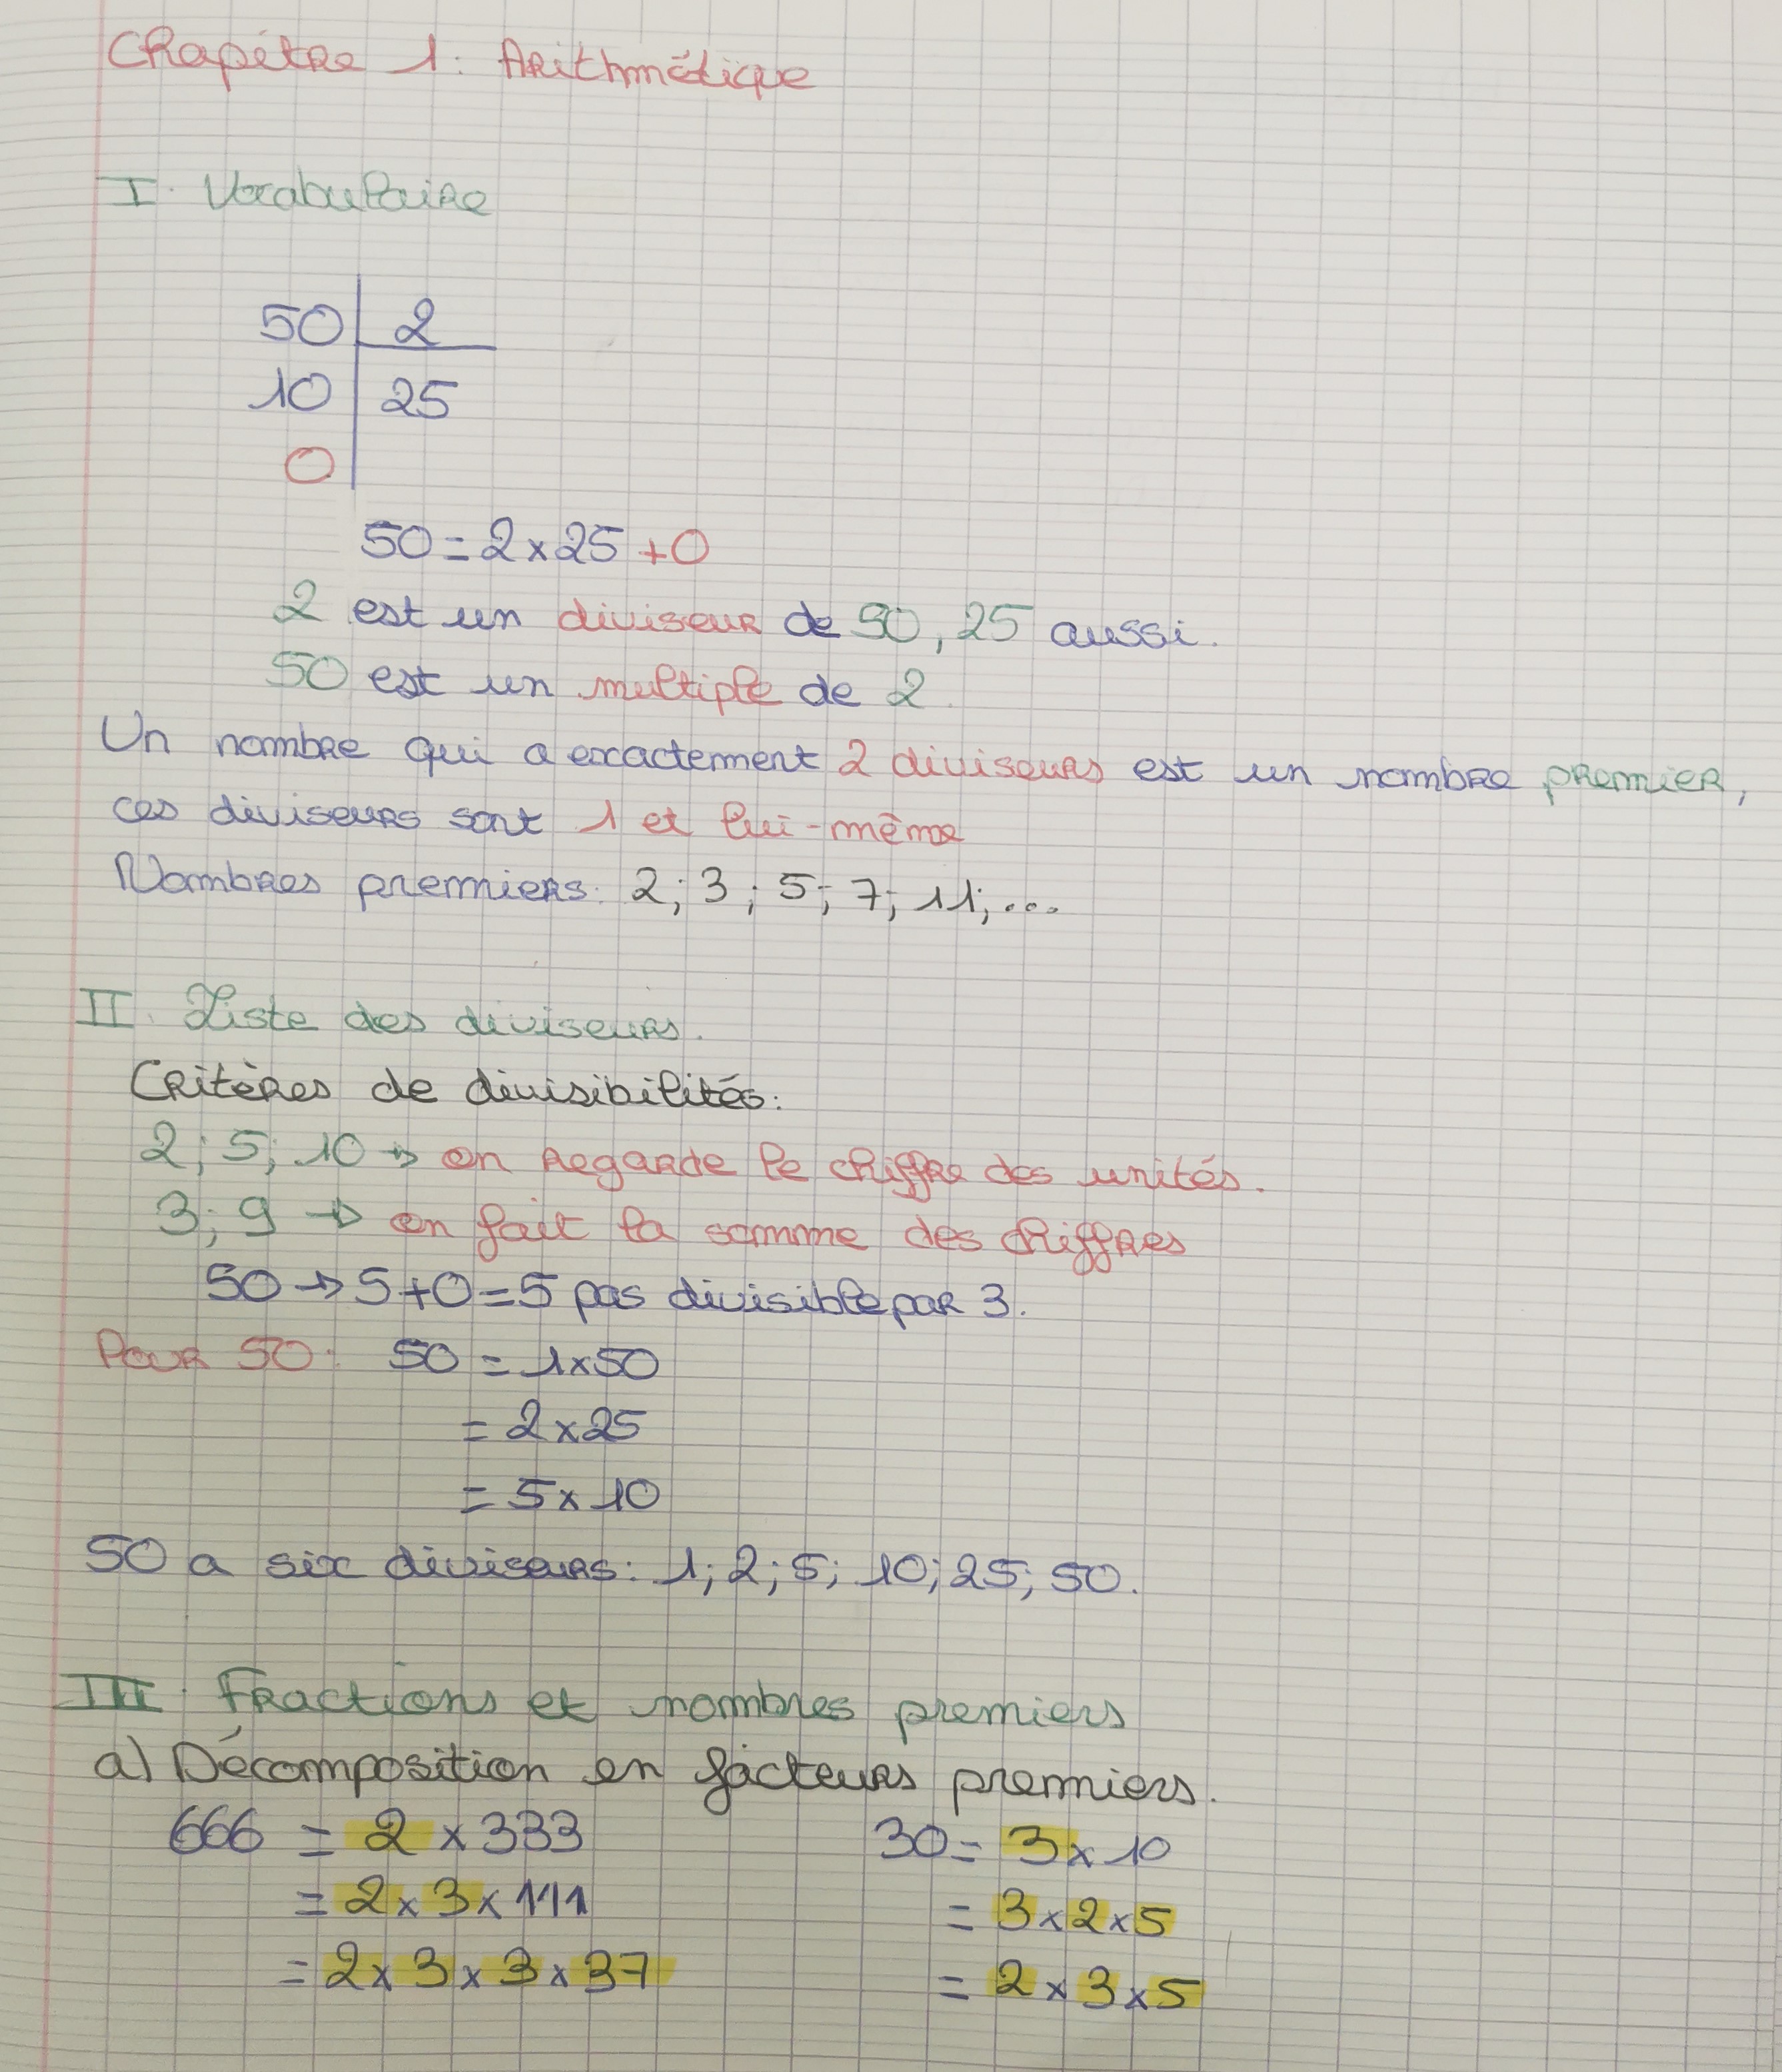 Chapitre 1: Arithmétique
I. Vocabulaire
50 | 2
10 | 25
0
50 = 2 x 25 + 0
2 est un diviseur de 50, 25 aussi.
50 est un multiple de 2.
Un nombre qui a exactement 2 diviseurs est un nombre premier,
ces diviseurs sont 1 et lui-même
Nombres premiers: 2; 3; 5; 7; 11; ...
II. Liste des diviseurs.
Critères de divisibilités:
2; 5; 10 → on regarde le chiffre des unités.
3; 9 → on fait la somme des chiffres
50 → 5+0=5 pas divisible par 3.
Pour 50: 50 = 1x50
= 2x25
= 5x10
50 a six diviseurs: 1; 2; 5; 10; 25; 50.
III. Fractions et nombres premiers
a) Décomposition en facteurs premiers.
666 = 2 x 333 30 = 3 x 10
= 2 x 3 x 111 = 3 x 2 x 5
= 2 x 3 x 3 x 37 = 2 x 3 x 5